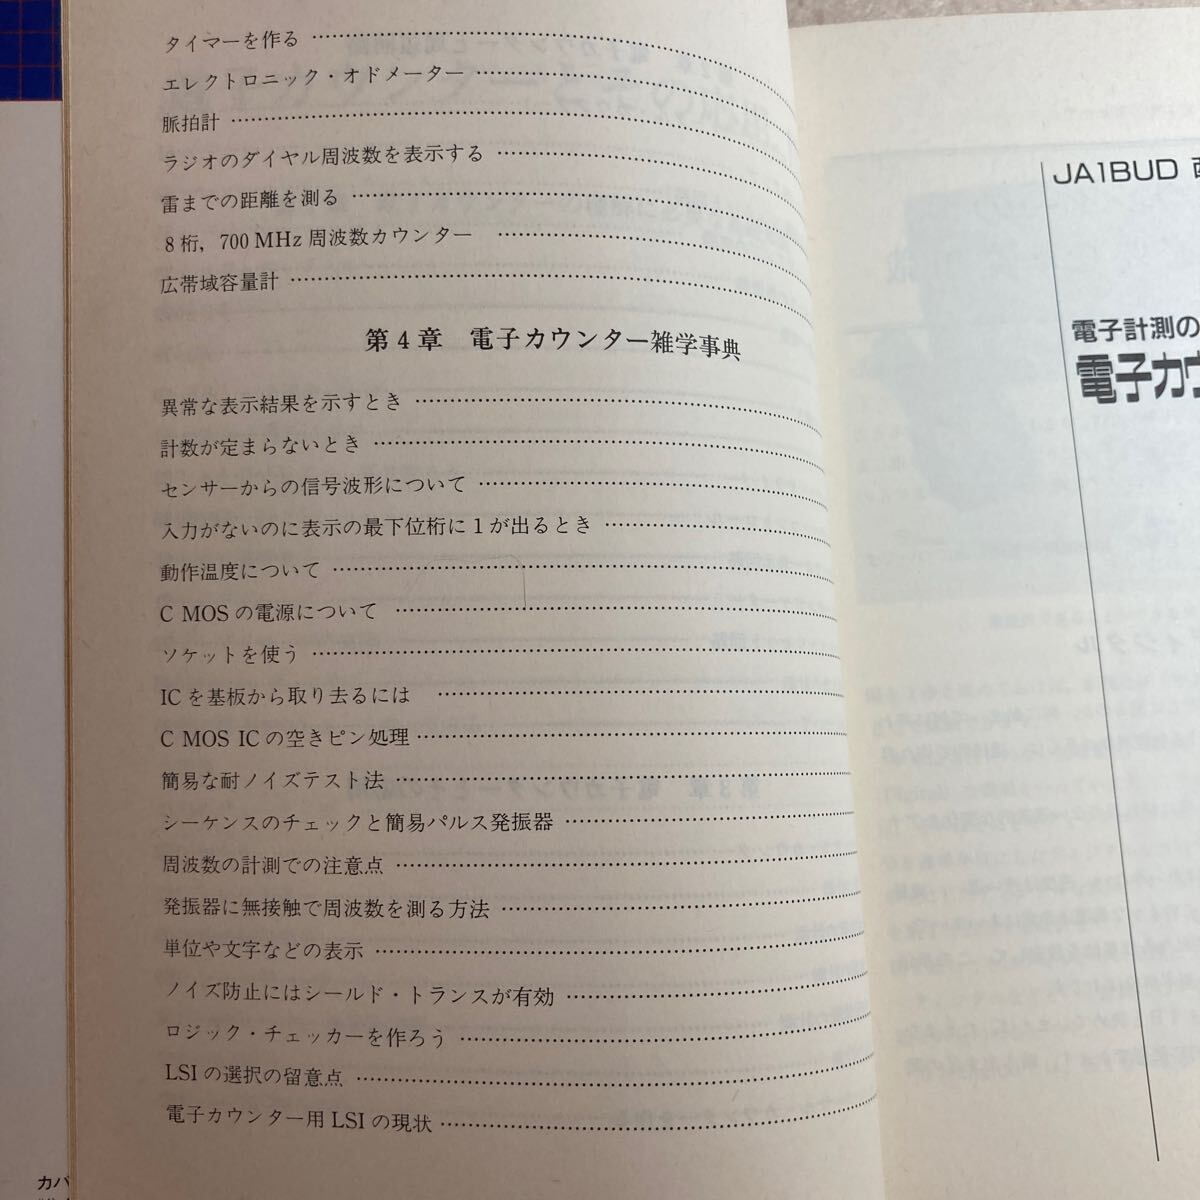 タイマーを作る
エレクトロニック・オドメーター
脈拍計
ラジオのダイヤル周波数を表示する
雷までの距離を測る
8桁，700 MHz 周波数カウンター
広帯域容量計
第4章　電子カウンター雑学事典
異常な表示結果を示すとき
計数が定まらないとき
センサーからの信号波形について
入力がないのに表示の最下位桁に1が出るとき
動作温度について
C MOS の電源について
ソケットを使う
IC を基板から取り去るには
C MOS IC の空きピン処理
簡易な耐ノイズテスト法
シーケンスのチェックと簡易パルス発振器
周波数の計測での注意点
発振器に無接触で周波数を測る方法
単位や文字などの表示
ノイズ防止にはシールド・トランスが有効
ロジック・チェッカーを作ろう
LSI の選択の留意点
電子カウンター用 LSI の現状
カバ
JA1BUD
電子計測の
電子カウ